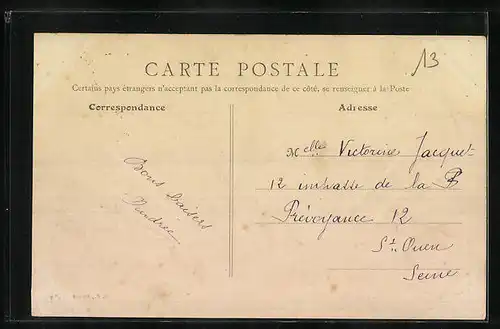 13
CARTE POSTALE
Certains pays étrangers n'acceptent pas la correspondance de ce côté, se renseigner à la Poste
Correspondance
Adresse
Bons baisers
Melle Victorine Jacquet
12 impasse de la
Prévoyance 12
St Ouen
Seine